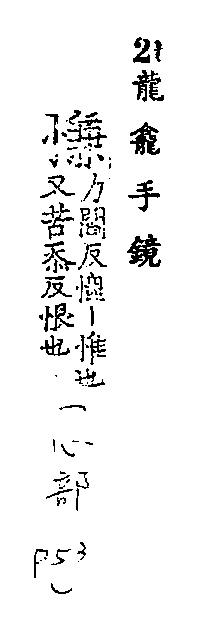 21 龍龕手鏡
力閻反丨惟也
又苦忝反恨也
(心部
P53)